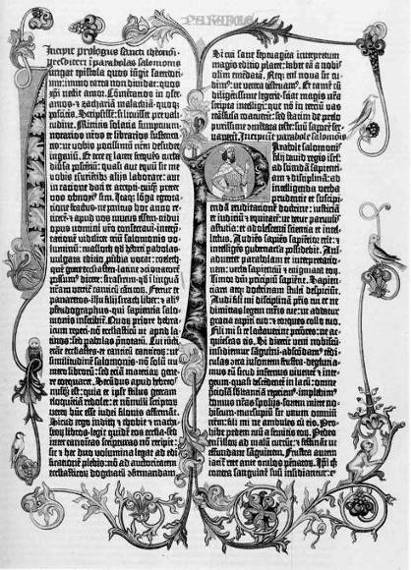 PARABOLE
Incipit prologus sancti iheronimi
presbiteri i parabolas salomonis
Iungat epistola quos iungit sacerdotiū:
immo carta non dividat: quos
xpi nectit amor. Cōmētarios in osee
amos et zachariā malachiā quoq;
poscitis. Scripsissē: si licuisset pre valitudine.
Mittitis solacia sumptuum
notarios nr̄os et librarios sustētatis:
ut vobis potissimū nr̄m desudet
ingeniū. Et ecce ex latere freques turba
diversa poscentiū: quasi aut equū sit me
vobis esuriētibus alijs laborare: aut
in ratione dati et accepti cuiq; preter
vos obnoxi⁹ sim. Itaq; lōga egrotatione
fractus: ne penitus hoc anno reticerē
et apud vos mutus essem: tridui
opus nomini vr̄o consecravi: interp̄tationē
videlicet triū salomonis voluminū:
masloth qd hebrei parabolas
vulgata editio p̄vbia vocat: coeleth:
quē grece ecclesiasten latine cōcionatorē
possum⁹ dicere: sirasirim: qd ī linguā
nr̄am vertit̄ canticū cāticorū. Fertur et
panaretos ihesu filij sirach liber: et ali⁹
pseudographus qui sapientia salomonis
inscribit̄. Quorū priorē hebraicum
repperi: nō ecclesiasticū ut apud latinos:
sed parabolas p̄notatū. Cui iūcti
erāt ecclesiastes et canticū canticorū: ut
similitudinē salomonis nō solū numero
librorū: sed etiā materiaꝝ genere
coequaret. Secūdus apud hebreos
nusq̄ est: quia et ipse stilus grecam
eloquētiā redolet: et nōnulli scriptorū
veterū hūc esse iudei filonis affirmāt.
Sicut ergo iudith et thobie et machabeorū
libros legit quidē eos ecclesia sed
inter canonicas scripturas nō recipit:
sic et hec duo volumina legat ad edificationē
plebis: nō ad auctoritatem
ecclesiasticoꝝ dogmatū cōfirmandam.
Si cui sane septuaginta interpretum
magis editio placet: habet eā a nobis
olim emēdatā. Neq; eni nova sic cudim⁹:
ut vetera destruam⁹. Et tamē cū
diligētissime legerit: sciat magis nr̄a
scripta intelligi: que nō in terciū vas
trāsfusa coacuerīt: sed statim de prelo
purissime cōmēdata teste: suū saporē servaverīt.
Incipiūt parabole salomonis
Parabole salomonis
filij david regis isrl̄:
ad sciendā sapientiam
et disciplinā: ad
intelligenda verba
prudentie et suscipienda
eruditionē doctrine: iusticiā
et iudiciū et equitatē: ut detur parvulis
astutia: et adolescenti scientia et intellectus.
Audiēs sapiēs sapientior erit: et
intelligēs gubernacula possidebit. Animadvertet
parabolam et interpretationem:
verba sapientiū et enigmata eoꝝ.
Timor dn̄i principiū sapiētie. Sapientiam
atq; doctrinam stulti despiciūt.
Audi fili mi disciplinā pris tui et ne
dimittas legem mr̄is tue: ut addatur
gratia capiti tuo: et torques collo tuo.
Fili mi si te lactaverint p̄ctores: ne acquiescas
eis. Si dixerīt veni nobiscū:
insidiemur sāguini: abscōdam⁹ tēdiculas
cōtra insontem frustra: deglutiam⁹
eū sicut infernus viventē et integrum:
quasi descēdentē in lacū: omnē
p̄ciosā substātiā reperiem⁹: implebim⁹
domus nr̄as spolijs: sortem mitte nobiscum:
marsupiū sit unum omniū
nr̄m: fili mi ne ambules cū eis. Prohibe
pedem tuū a semitis eoꝝ. Pedes
eni illoꝝ ad malū currūt: et festināt ut
effundant sāguinem. Frustra autem
iacit̄ rete ante oculos pēnatoꝝ. Ipsi q̄
contra sanguinē suū insidiantur: et